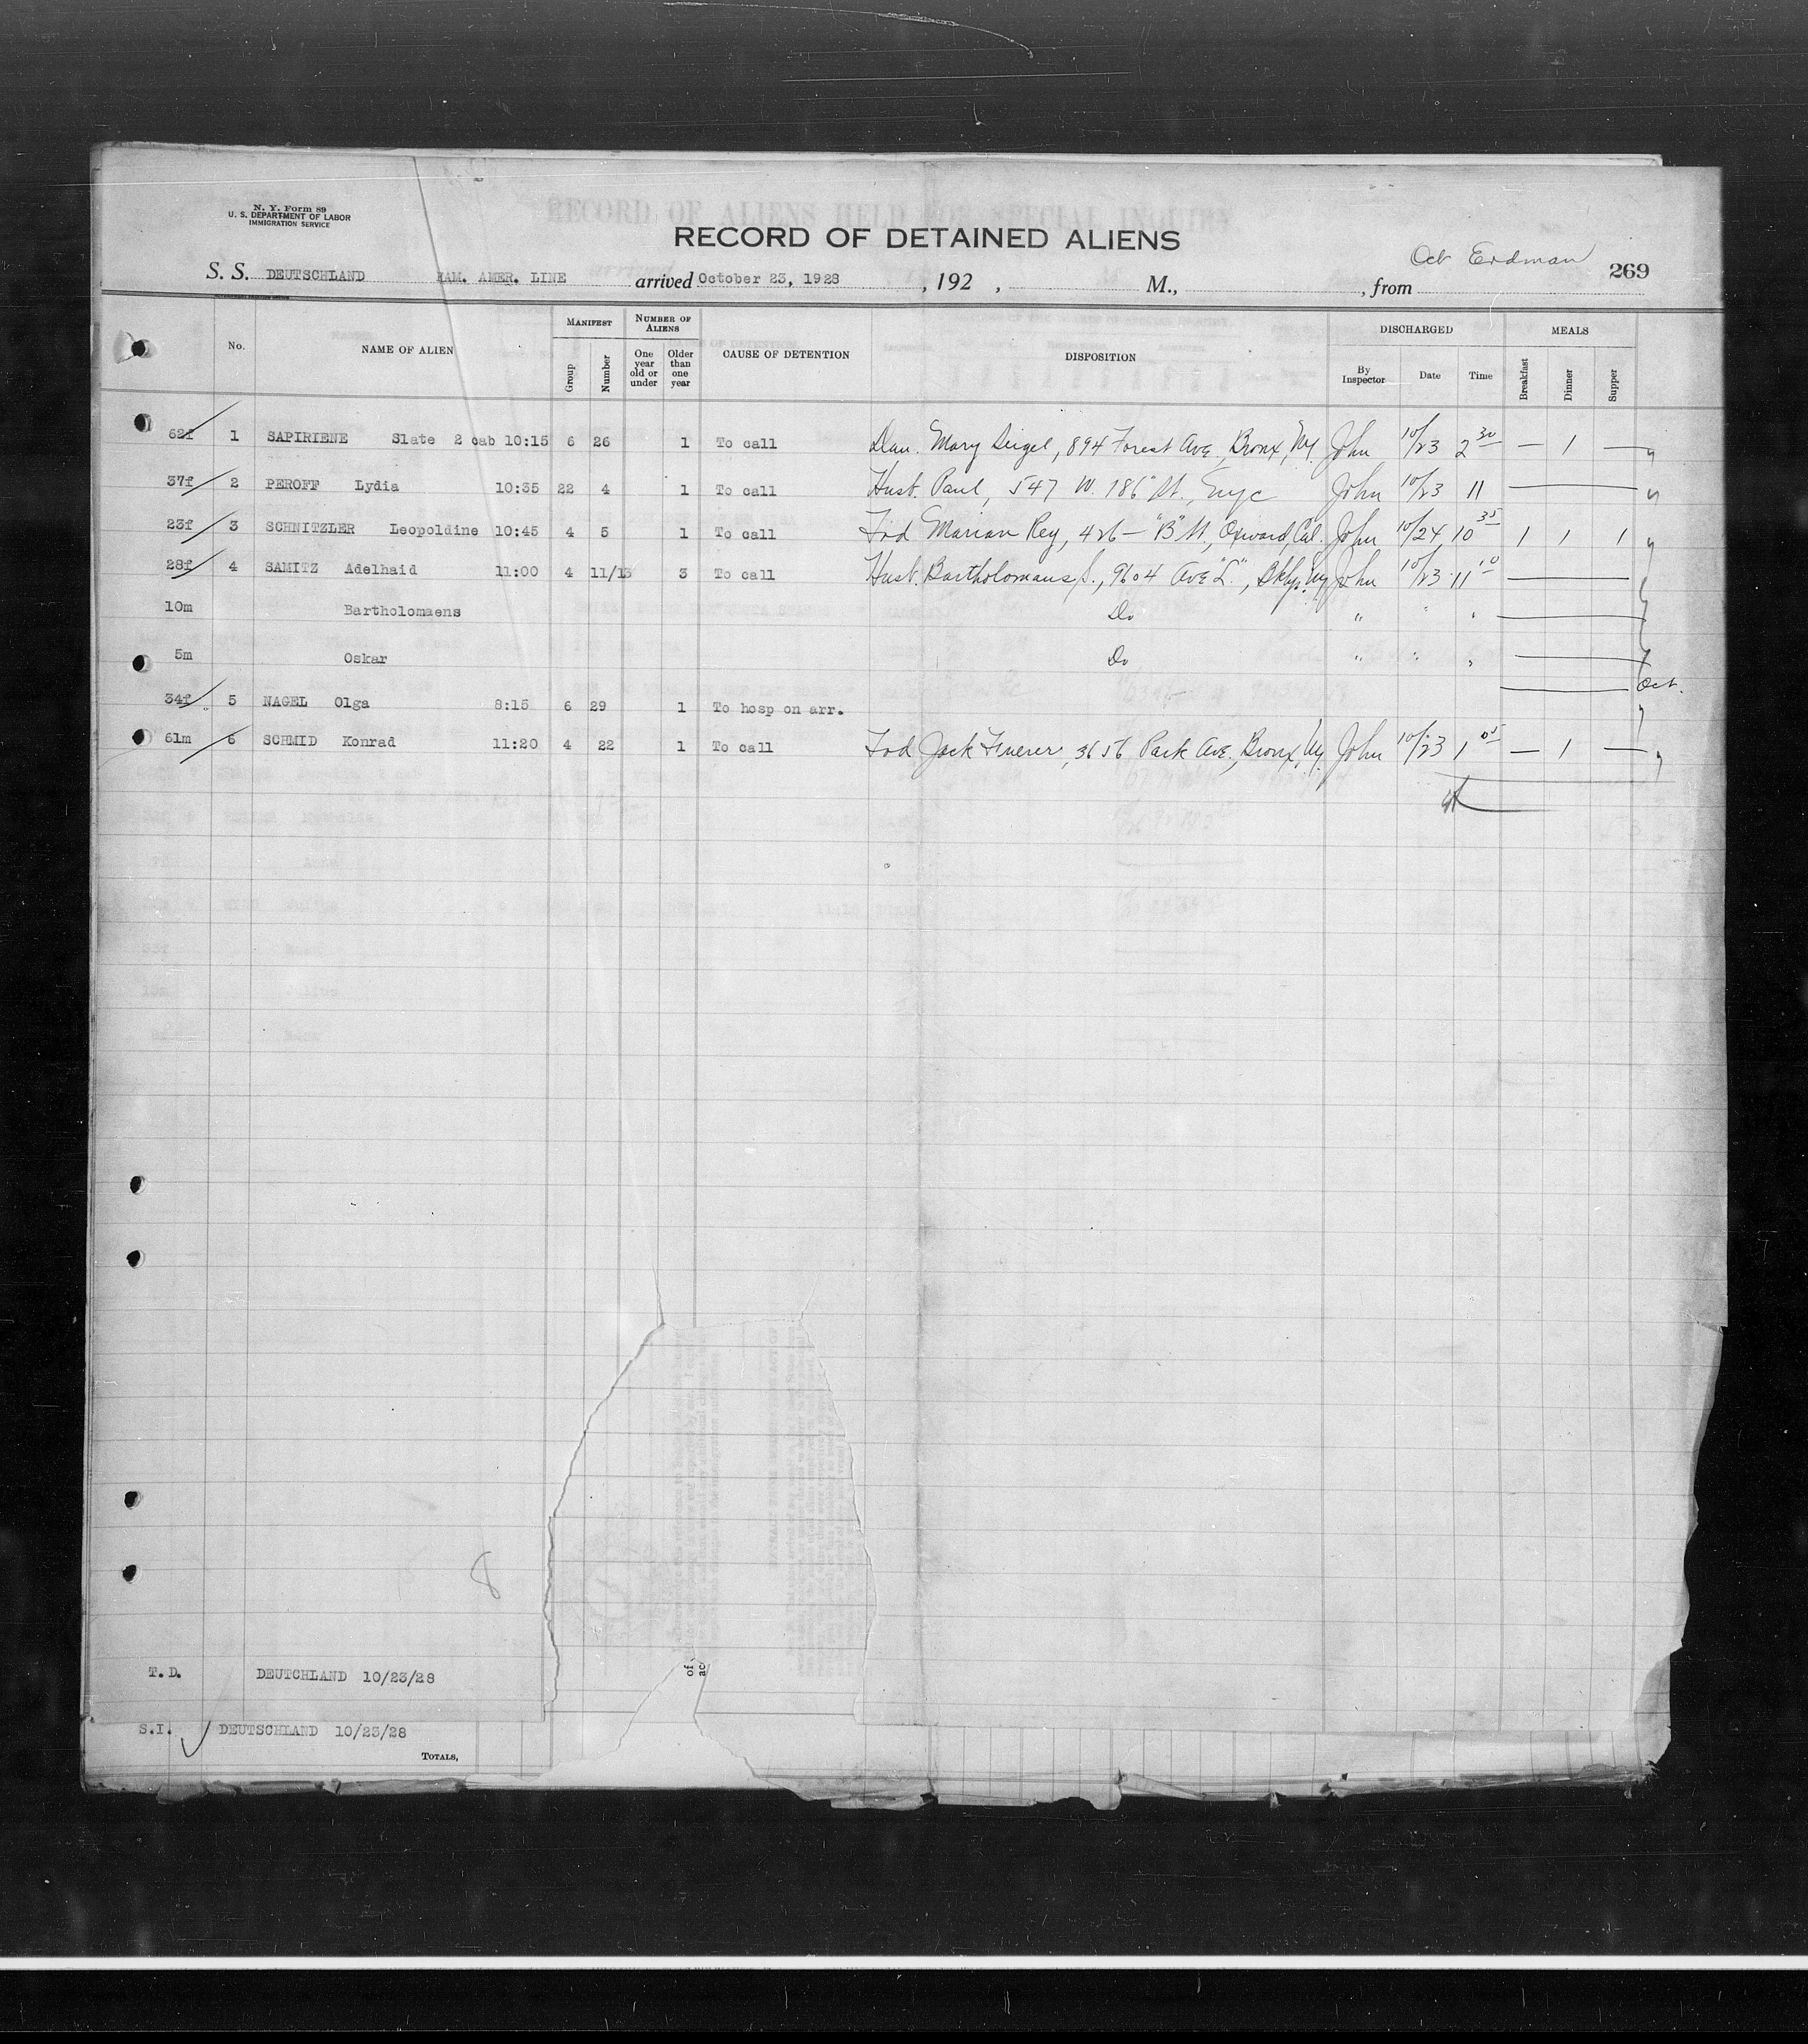 N. Y. Form 89
U. S. DEPARTMENT OF LABOR
IMMIGRATION SERVICE
RECORD OF ALIENS HELD FOR SPECIAL INQUIRY.
RECORD OF DETAINED ALIENS
Erdman
269
S. S. DEUTSCHLAND HAM. AMER. LINE arrived October 23, 1928, 192 , M., , from
No. NAME OF ALIEN MANIFEST Group Number NUMBER OF ALIENS One year old or under Older than one year CAUSE OF DETENTION DISPOSITION DISCHARGED By Inspector Date Time MEALS Breakfast Dinner Supper
62f 1 SAPIRIENE Slate 2 cab 10:15 6 26 1 To call Dau. Mary Seigel, 894 Forest Ave, Bronx, Ny. John 10/23 2 30 — 1 —
37f 2 PEROFF Lydia 10:35 22 4 1 To call Husb. Paul, 547 W. 186" St., Nyc John 10/23 11
23f 3 SCHNITZLER Leopoldine 10:45 4 5 1 To call Frd Marian Rey, 426 — "B" St., Oxnard, Cal. John 10/24 10 35 1 1 1
28f 4 SAMITZ Adelhaid 11:00 4 11/13 3 To call Husb. Bartholomaus S., 9604 Ave "L", Bklyn. Ny John 10/23 11 10
10m Bartholomaens Do " " "
5m Oskar Do " " "
Oct.
34f 5 NAGEL Olga 8:15 6 29 1 To hosp on arr.
61m 6 SCHMID Konrad 11:20 4 22 1 To call Frd Jack Feuerer, 3656 Park Ave., Bronx, Ny. John 10/23 1 05 — 1 —
8
of
ac
T.D. DEUTCHLAND 10/23/28
S.I. DEUTSCHLAND 10/23/28
TOTALS,